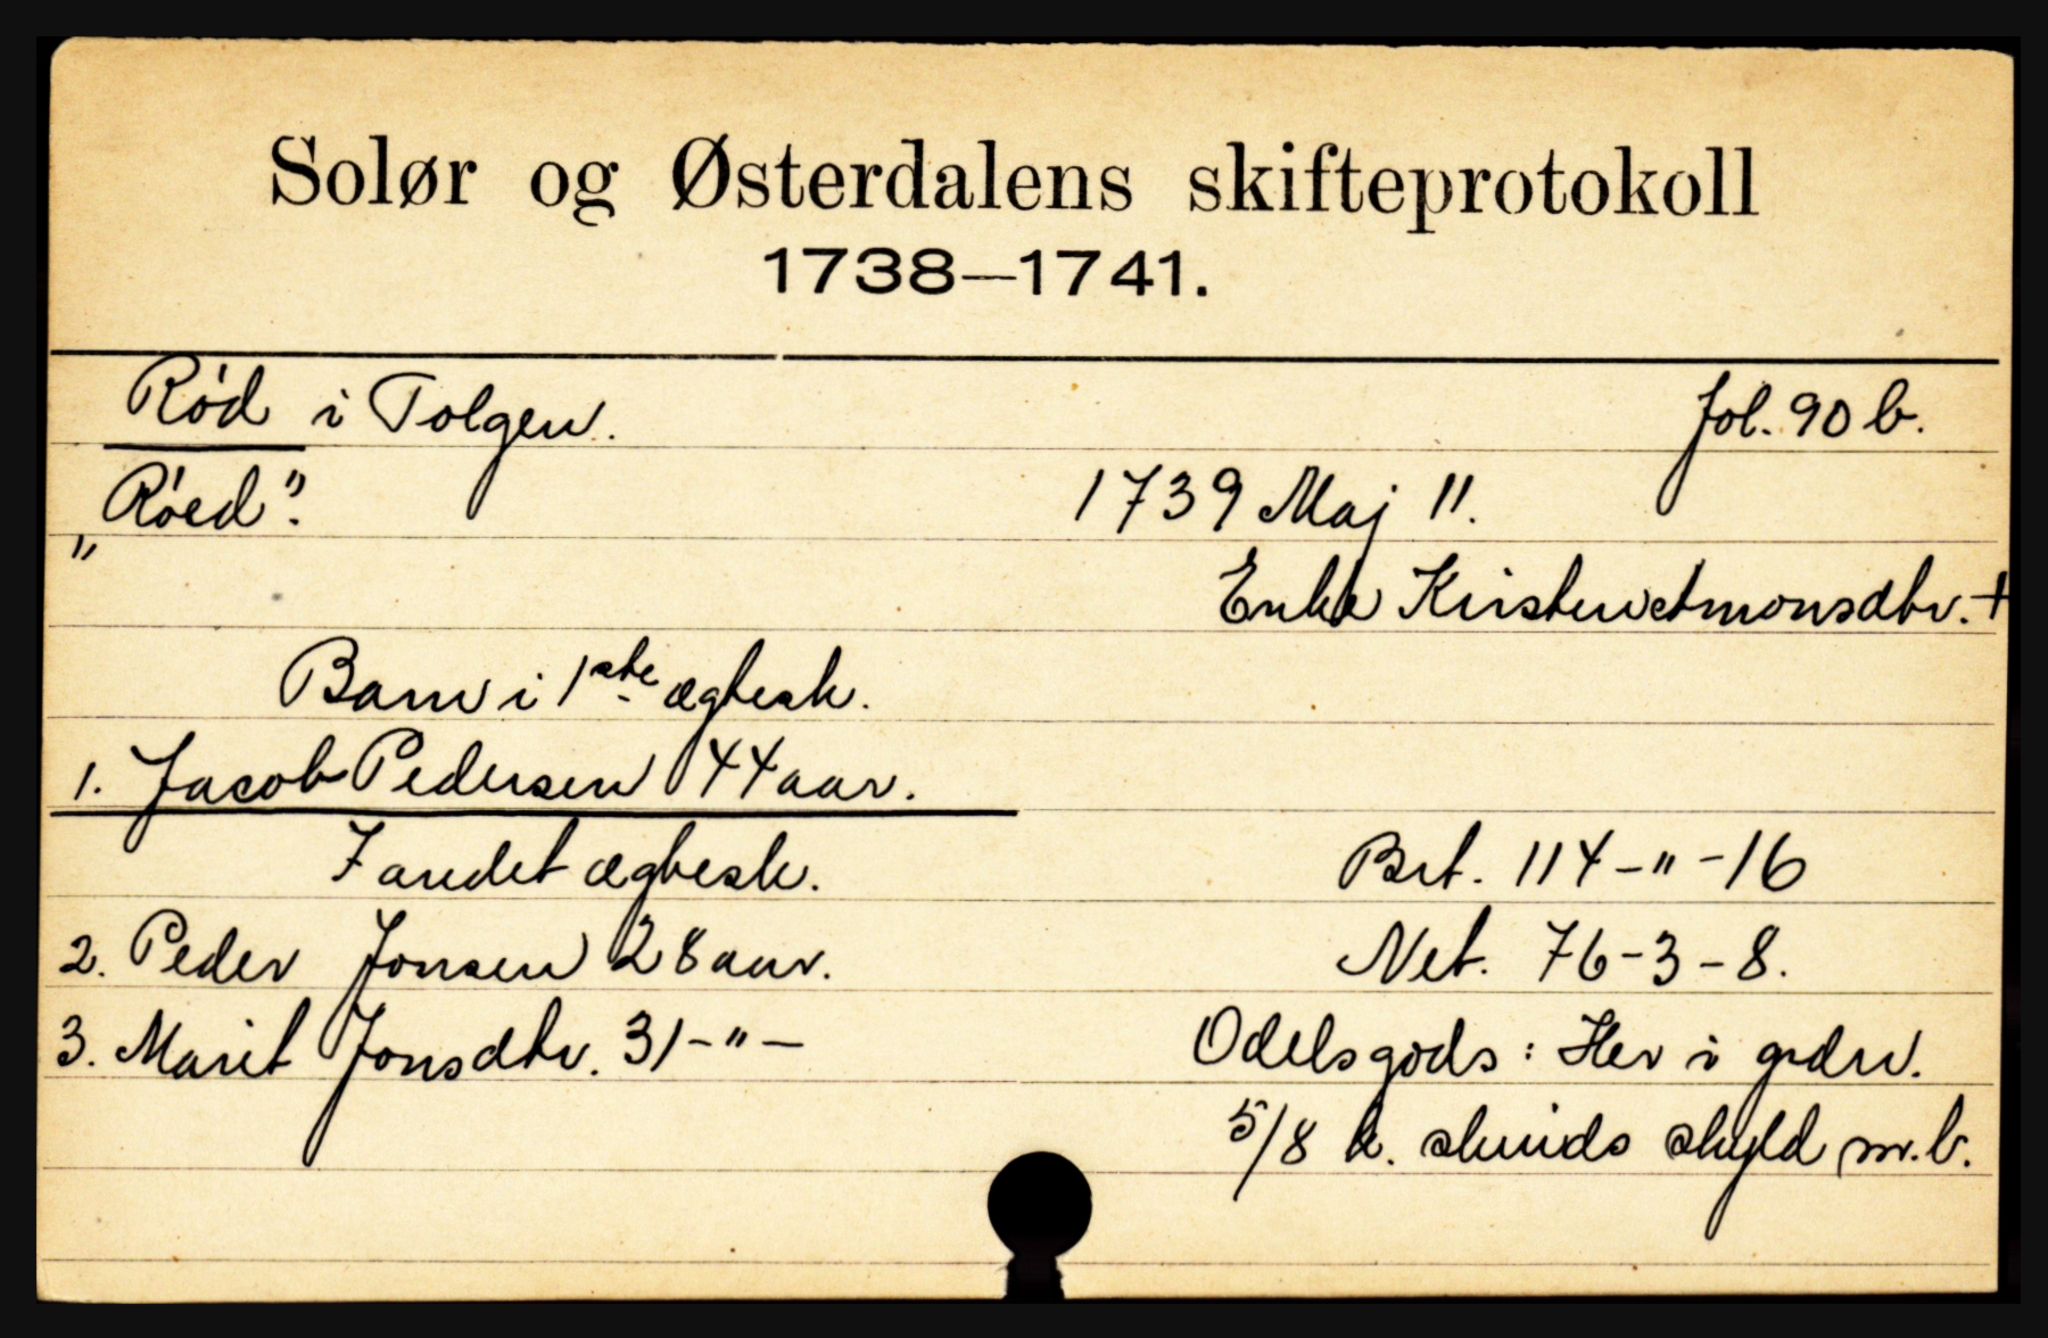 Solør og Østerdalens skifteprotokoll
1738—1741.
Rød i Tolgen. fol. 90 b.
„Røed”. 1739 Maj 11.
Enke Kirsten Amonsdtr. +
Barn i 1ste ægtesk.
1. Jacob Pedersen 44 aar.
I andet ægtesk. Brt. 114 - " - 16
2. Peder Jonsen 28 aar. Net. 76 - 3 - 8.
3. Marit Jonsdtr. 31 - " - Odelsgods: Her i grdn.
5/8 k. skinds skyld m.b.